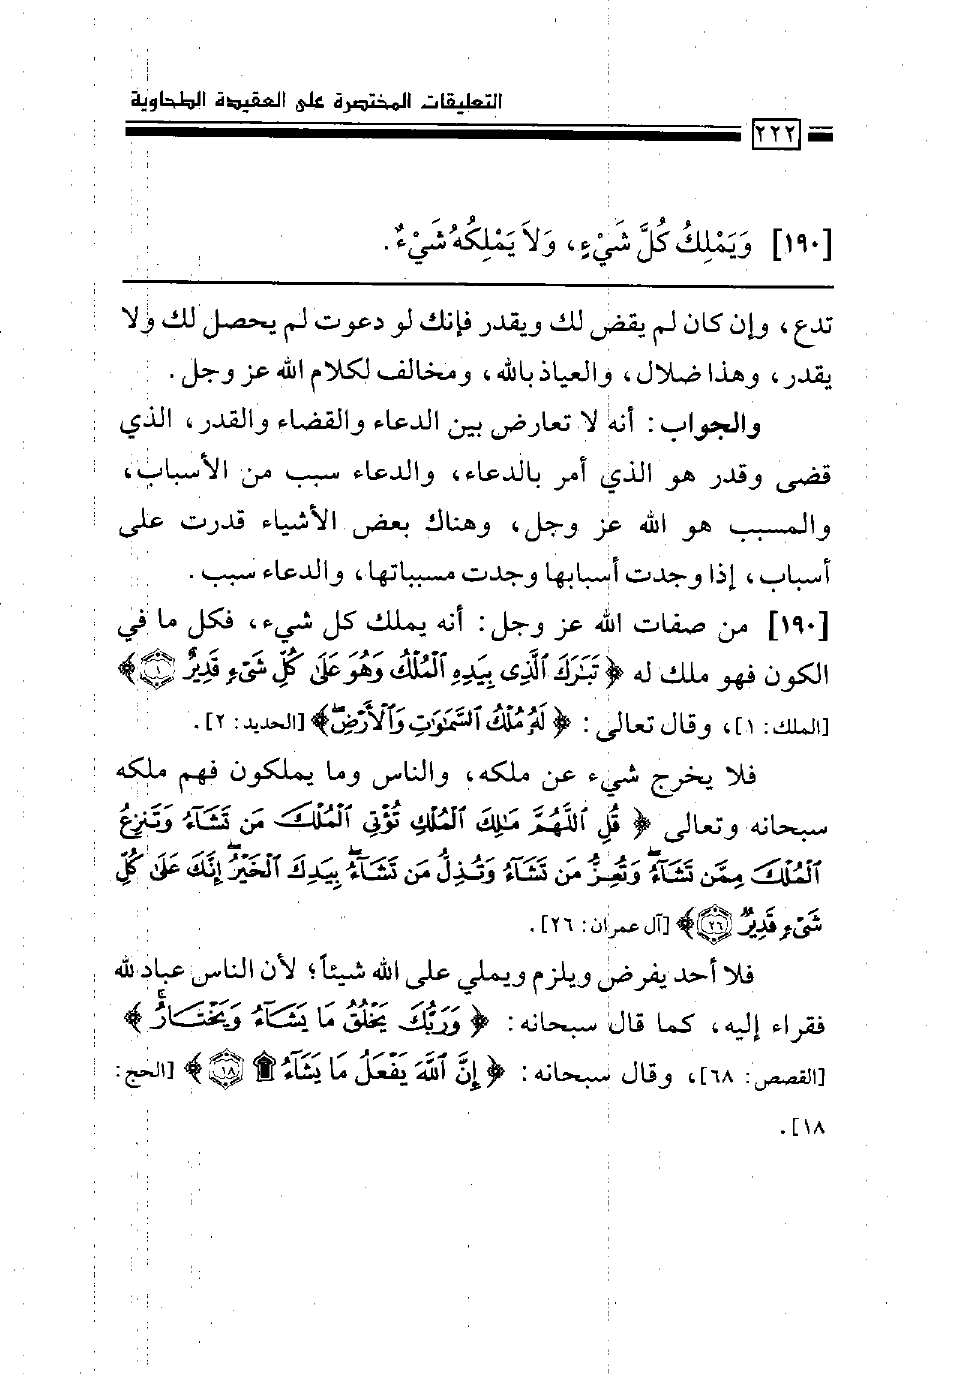 التعليقات المختصرة على العقيدة الطحاوية
٢٢٢
[١٩٠] وَيَمْلِكُ كُلَّ شَيْءٍ، وَلاَ يَمْلِكُهُ شَيْءٌ.
تدع، وإن كان لم يقض لك ويقدر فإنك لو دعوت لم يحصل لك ولا
يقدر، وهذا ضلال، والعياذ بالله، ومخالف لكلام الله عز وجل.
والجواب: أنه لا تعارض بين الدعاء والقضاء والقدر، الذي
قضى وقدر هو الذي أمر بالدعاء، والدعاء سبب من الأسباب،
والمسبب هو الله عز وجل، وهناك بعض الأشياء قدرت على
أسباب، إذا وجدت أسبابها وجدت مسبباتها، والدعاء سبب.
[١٩٠] من صفات الله عز وجل: أنه يملك كل شيء، فكل ما في
الكون فهو ملك له ﴿تَبَٰرَكَ ٱلَّذِى بِيَدِهِ ٱلْمُلْكُ وَهُوَ عَلَىٰ كُلِّ شَىْءٍ قَدِيرٌ ١﴾
[الملك: ١]، وقال تعالى: ﴿لَهُۥ مُلْكُ ٱلسَّمَٰوَٰتِ وَٱلْأَرْضِۖ﴾ [الحديد: ٢].
فلا يخرج شيء عن ملكه، والناس وما يملكون فهم ملكه
سبحانه وتعالى ﴿قُلِ ٱللَّهُمَّ مَٰلِكَ ٱلْمُلْكِ تُؤْتِى ٱلْمُلْكَ مَن تَشَآءُ وَتَنزِعُ
ٱلْمُلْكَ مِمَّن تَشَآءُۖ وَتُعِزُّ مَن تَشَآءُ وَتُذِلُّ مَن تَشَآءُۖ بِيَدِكَ ٱلْخَيْرُۖ إِنَّكَ عَلَىٰ كُلِّ
شَىْءٍ قَدِيرٌ ٢٦﴾ [آل عمران: ٢٦].
فلا أحد يفرض ويلزم ويملي على الله شيئاً؛ لأن الناس عباد لله
فقراء إليه، كما قال سبحانه: ﴿وَرَبُّكَ يَخْلُقُ مَا يَشَآءُ وَيَخْتَارُۗ﴾
[القصص: ٦٨]، وقال سبحانه: ﴿إِنَّ ٱللَّهَ يَفْعَلُ مَا يَشَآءُ ۩ ١٨﴾ [الحج:
١٨].